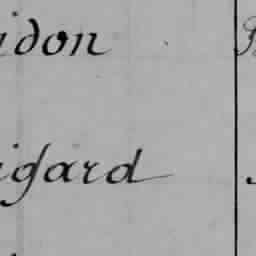 idon
igard